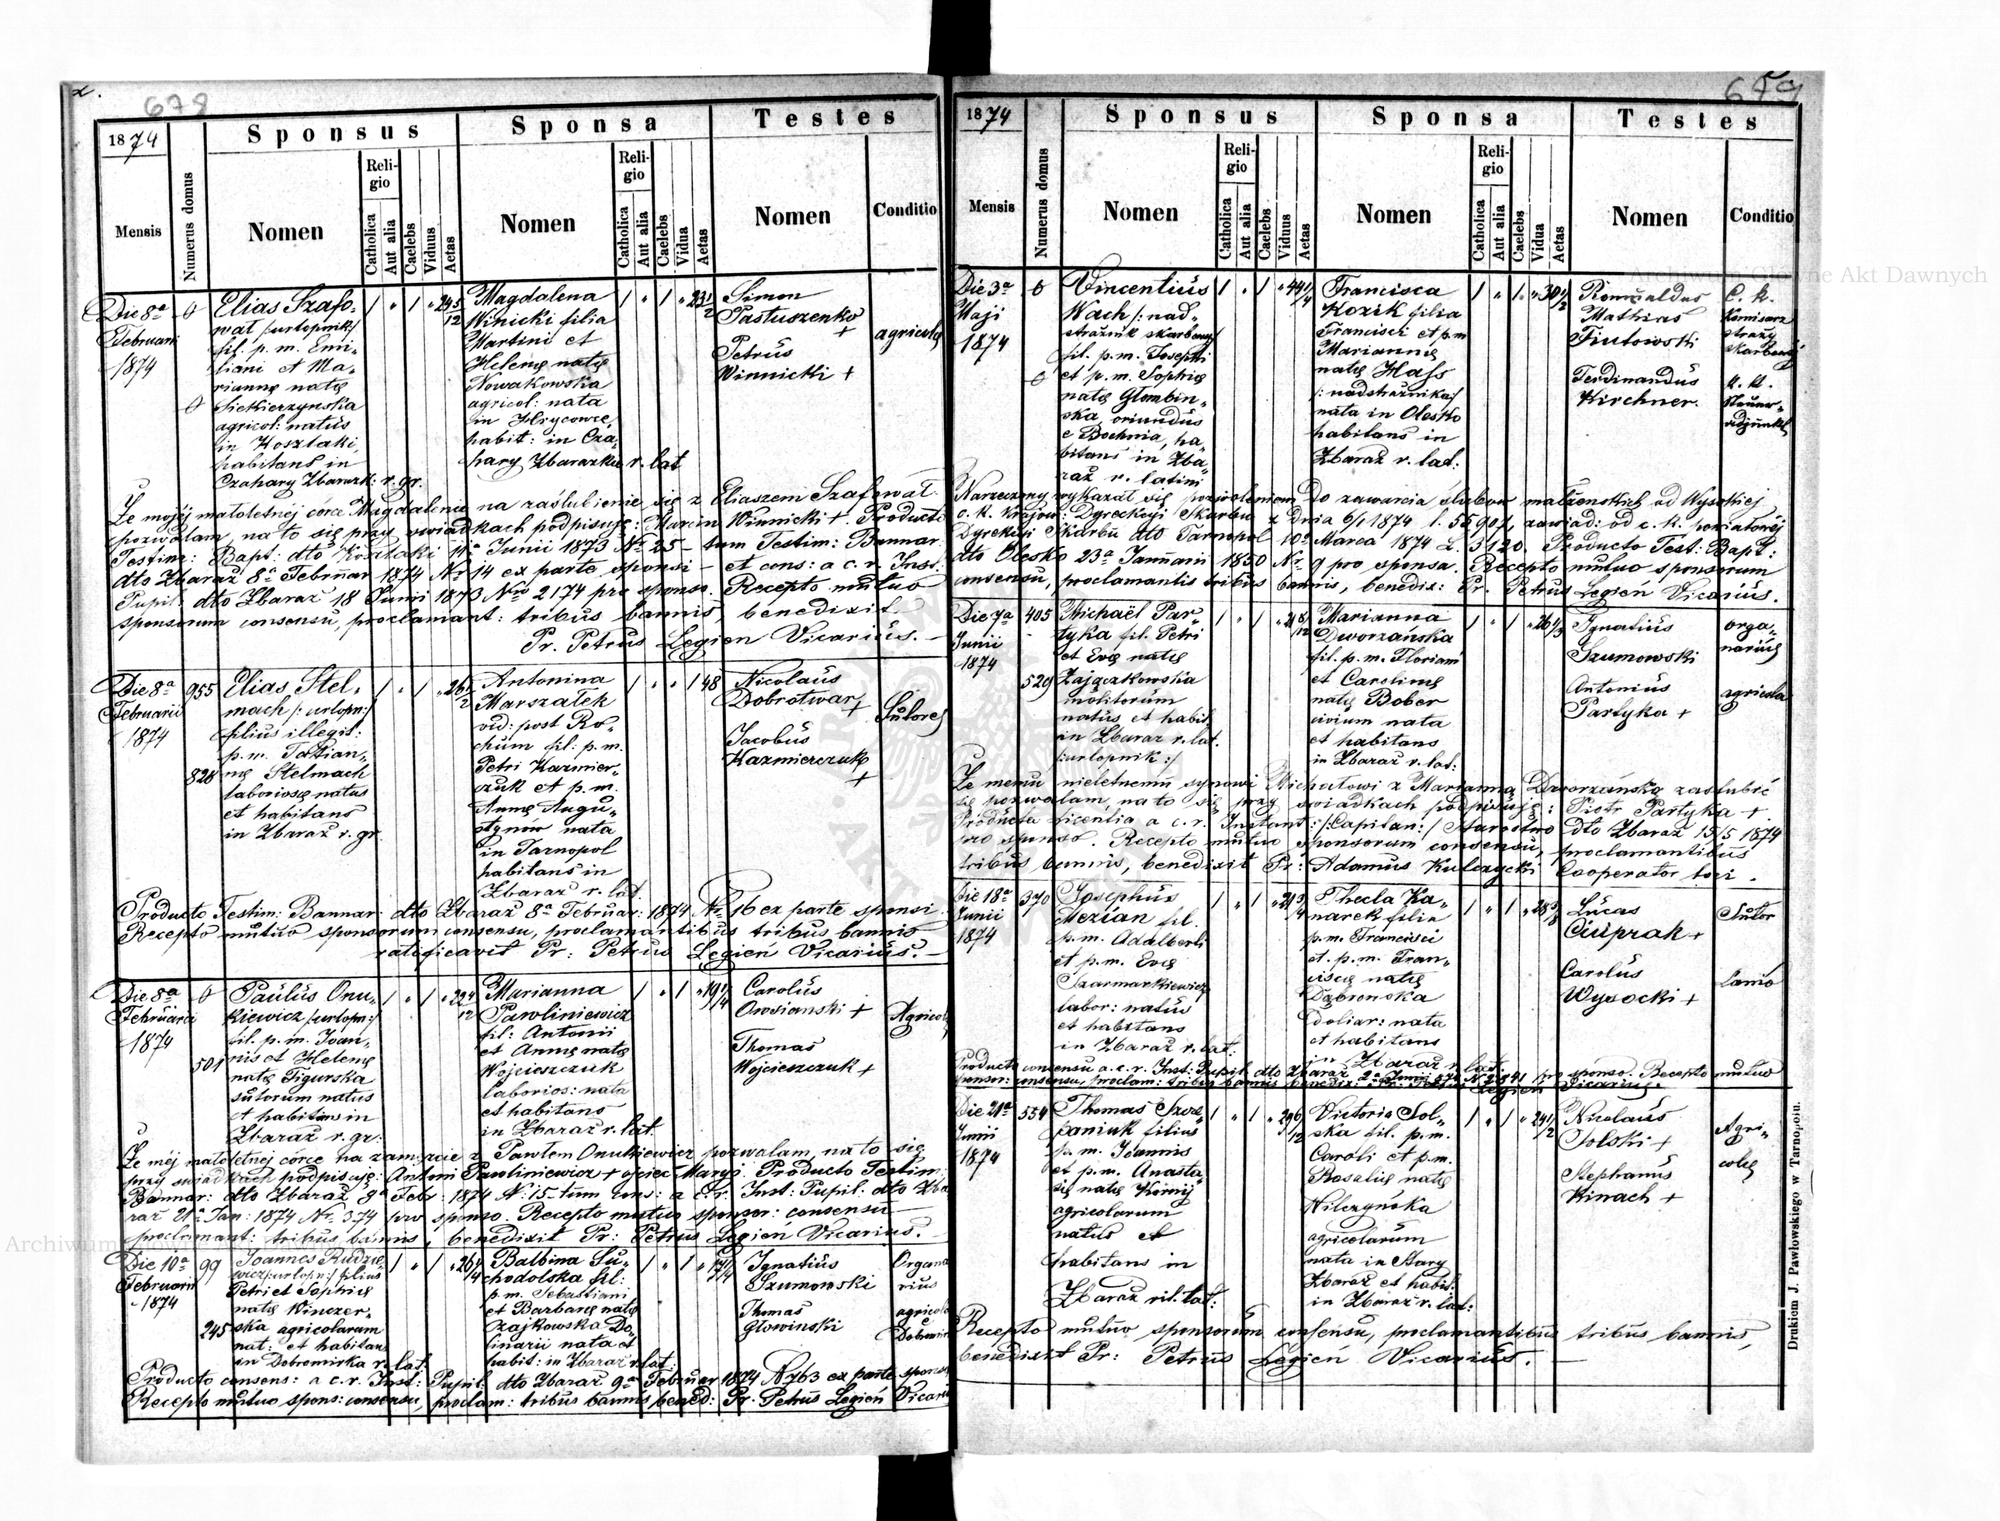 678
1874
Sponsus
Sponsa
Testes
Mensis
Numerus domus
Nomen
Religio
Catholica
Aut alia
Caelebs
Viduus
Aetas
Nomen
Religio
Catholica
Aut alia
Caelebs
Vidua
Aetas
Nomen
Conditio
Die 8ª
Februarii
1874
Elias Szafo-
wał /:urlopnik:/
fil. p. m. Emi-
liani et Ma-
riannę natę
Siekierzynska
agricol: natus
in Koszlaki,
habitans in
Czahary Zbarazk: r. gr.
24 5/12
Magdalena
Winicki filia
Martini et
Helenę natę
Nowakowska
agricol: nata
in Hrycowce,
habit: in Cza-
hary Zbarazkie r. lat
23 1/2
Simon
Pastuszenko
+
Petrus
Winnicki +
agricolę
Że mojéj małoletnéj córce Magdalenie na zaślubienie się z Eliaszem Szafował
pozwalam, na to się przy świadkach podpisuję: Marcin Winnicki +. Producto
Testim: Bapt: dto Koszlaki Junii 1873 Nr 25 - tum Testim: Bannar
dto Zbaraż 8ª Februar 1874 Nr 14 ex parte sponsi - et cons: a c. r. Inst:
Pupil: dto Zbaraż 18 Junii 1873 Nro 2174 pro sponso. Recepto mutuo
sponsorum consensu, proclamant: tribus bannis, benedixit
Pr. Petrus Legień Vicarius. -
Die 8ª
Februarii
1874
955
828
Elias Stel-
mach /:urlopn:/
filius illegit:
p. m. Tatian-
nę Stelmach
laboriosę natus
et habitans
in Zbaraż r. gr.
26 1/2
Antonina
Marszałek
vid: post Ro-
chum fil: p. m.
Petri Kazmier-
czuk et p. m.
Annę Augu-
stynów nata
in Tarnopol
habitans in
Zbaraż r. lat.
48
Nicolaus
Dobrotwar
+
Jacobus
Kazmierczuk
+
Sutores
Producto Testim: Bannar: dto Zbaraż 8ª Februar: 1874 Nr 16 ex parte sponsi
Recepto mutuo sponsorum consensu, proclamantibus tribus bannis
ratificavit Pr: Petrus Legień Vicarius. -
Die 8ª
Februarii
1874
501
Paulus Onu-
kiewicz /:urlopn:/
fil. p. m. Joan-
nis et Helenę
natę Figurska
sutorum natus
et habitans in
Zbaraż r. gr:
Marianna
Pawliniewicz
fil: Antonii
et Annę natę
Wojcieszczuk
laborios: nata
et habitans
in Zbaraż r. lat.
19 1/4
Carolus
Owsianski +
Thomas
Wojcieszczuk +
Agricolę
Że méj małoletnéj córce na zamęzcie z Pawłem Onukiewicz pozwalam, na to się
przy świadkach podpisuję: Antoni Pawliniewicz + ojciec Maryi. Producto Testim:
Bannar: dto Zbaraż 8ª Febr: 1874 Nr 15 - tum cons: a c. r. Inst: Pupil. dto Zba
raż 21ª Jan: 1874 Nr. 374 pro sponso. Recepto mutuo sponsor: consensu
proclamant: tribus bannis, benedixit Pr: Petrus Legień Vicarius. -
Die 10ª
Februarii
1874
99
245
Joannes Rudzie-
wicz /:urlopn:/ filius
Petri et Sophię
natę Winczer-
ska agricolarum
nat: et habitans
in Dobromirka r. lat.
26 1/4
Balbina Su-
chodolska fil:
p. m. Sebastiani
et Barbarę natę
Czajkowska Do-
linarii nata et
habit: in Zbaraż r. lat.
17 1/4
Ignatius
Szumowski
Thomas
Głowinski
Organa
rius
agricola
e
Dobromir
Producto consens: a c. r. Inst: Pupil: dto Zbaraż 9ª Februar 1874 N 763 ex parte sponsi
Recepto mutuo spons: consensu, proclam: tribus bannis bened: Pr. Petrus Legień Vicarius
679
1874
Sponsus
Sponsa
Testes
Mensis
Numerus domus
Nomen
Religio
Catholica
Aut alia
Caelebs
Viduus
Aetas
Nomen
Religio
Catholica
Aut alia
Caelebs
Vidua
Aetas
Nomen
Conditio
Die 3ª
Maji
1874
Vincentius
Wach /:nad-
strażnik skarbowy:/
fil. p. m. Josephi
et p. m. Sophię
natę Głombin-
ska, oriundus
e Bochnia, ha-
bitans in Zba-
raż r. latini
44 1/4
Francisca
Kozik filia
Francisci et p. m
Mariannę
natę Hass
/:nadstrażnika:/
nata in Olesko
habitans in
Zbaraż r. lat.
30 1/2
Romualdus
Mathias
Fiutowski
Ferdinandus
Kirchner.
C. k.
Komisarz
straży
skarbowéj
k. k.
Steuer-
adjunkt
Narzeczony wykazał się pozwoleniem do zawarcia ślubów małżeńskich od Wysokiej
c. k. Krajow: Dyrekcyi Skarbu z dnia 6/1 1874 l. 55907, zawiad: od c. k. powiatowéj
Dyrekcyi Skarbu dto Tarnopol 10º Marca 1874 L. 5120. Producto Test: Bapt:
dto Olesko 23ª Januarii 1850 Nr 9 pro sponsa. Recepto mutuo sponsorum
consensu, proclamantis tribus bannis, benedix: Pr. Petrus Legień Vicarius.
Die 7ª
Junii
1874
405
529
Michaël Par-
tyka fil. Petri
et Evę natę
Zajączkowska
molitorum
natus et habit.
in Zbaraż r. lat.
/:urlopnik:/
Marianna
Dworzańska
fil. p. m. Floriani
et Carolinę
natę Bober
civium nata
et habitans
in Zbaraż r. lat:
26 1/3
Ignatius
Szumowski
Antonius
Partyka +
orga-
narius
agricola
Że memu nieletnemu synowi Michałowi z Marianną Dworzańską zaślubić
się pozwalam, na to się przy świadkach podpisuję: Piotr Partyka +.
Producta licentia a c. r. Instant: /:Capitan:/ Starostwo dto Zbaraż 15/5 1874
pro sponso. Recepto mutuo sponsorum consensu, proclamantibus
tribus bannis, benedixit Pr: Adamus Kulczycki Cooperator loci.
Die 18ª
Junii
1874
370
Josephus
Mezian fil.
p. m. Adalberti
et p. m. Evę
Szarmarkiewicz
labor: natus
et habitans
in Zbaraż r. lat:
21 3/4
Thecla Ka-
narek filia
p. m. Francisci
et p. m. Fran-
ciscę natę
Dąbrowska
doliar: nata
et habitans
in Zbaraż r. lat.
28 3/8
Lucas
Ciuprak +
Carolus
Wysocki +
Sutor
Lanio
Producto consensu a c. r. Inst: Pupil: dto Zbaraż 2ª Junii 874 N 2841 pro sponso. Recepto mutuo
sponsor: consensu, proclam: tribus bannis benedix: Legień Vicarius.
Die 21ª
Junii
1874
554
Thomas Szcze-
paniuk filius
p. m. Joannis
et p. m. Anasta
się natę Kornij
agricolarum
natus et
habitans in
Zbaraż rit. lat:
29 6/12
Victoria Sol-
ska fil. p. m.
Caroli et p. m.
Rosalię natę
Wilczyńska
agricolarum
nata in Stary
Zbaraż et habit.
in Zbaraż r. lat:
24 1/2
Nicolaus
Solski +
Stephanus
Kinach +
Agri-
colę
Recepto mutuo sponsorum consensu, proclamantibus tribus bannis,
benedixit Pr: Petrus Legień Vicarius. -
Drukiem J. Pawłowskiego w Tarnopolu.
Archiwum Główne Akt Dawnych
Archiwum Główne Akt Dawnych